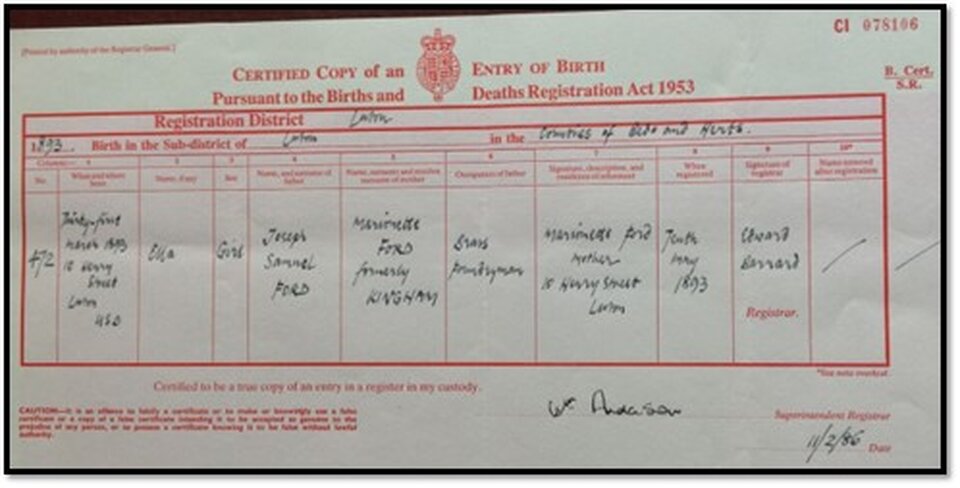 CI 078106
[Printed by authority of the Registrar General.]
CERTIFIED COPY of an ENTRY OF BIRTH
Pursuant to the Births and Deaths Registration Act 1953
B. Cert.
S.R.
Registration District Luton
1893. Birth in the Sub-district of Luton in the Counties of Beds and Herts.
Columns:- 1 2 3 4 5 6 7 8 9 10*
No. When and where born Name, if any Sex Name, and surname of father Name, surname and maiden surname of mother Occupation of father Signature, description, and residence of informant When registered Signature of registrar Name entered after registration
472
Thirty-first
March 1893
10 Henry
Street
Luton
USD
Ella
Girl
Joseph
Samuel
FORD
Marionette
FORD
formerly
KINGHAM
Brass
Foundryman
Marionette Ford
Mother
10 Henry Street
Luton
Tenth
May
1893
Edward
Barrard
Registrar.
*See note overleaf.
Certified to be a true copy of an entry in a register in my custody.
CAUTION:—It is an offence to falsify a certificate or to make or knowingly use a false
certificate or a copy of a false certificate intending it to be accepted as genuine to the
prejudice of any person, or to possess a certificate knowing it to be false without lawful
authority.
Wm Anderson
Superintendent Registrar
11/2/86 Date